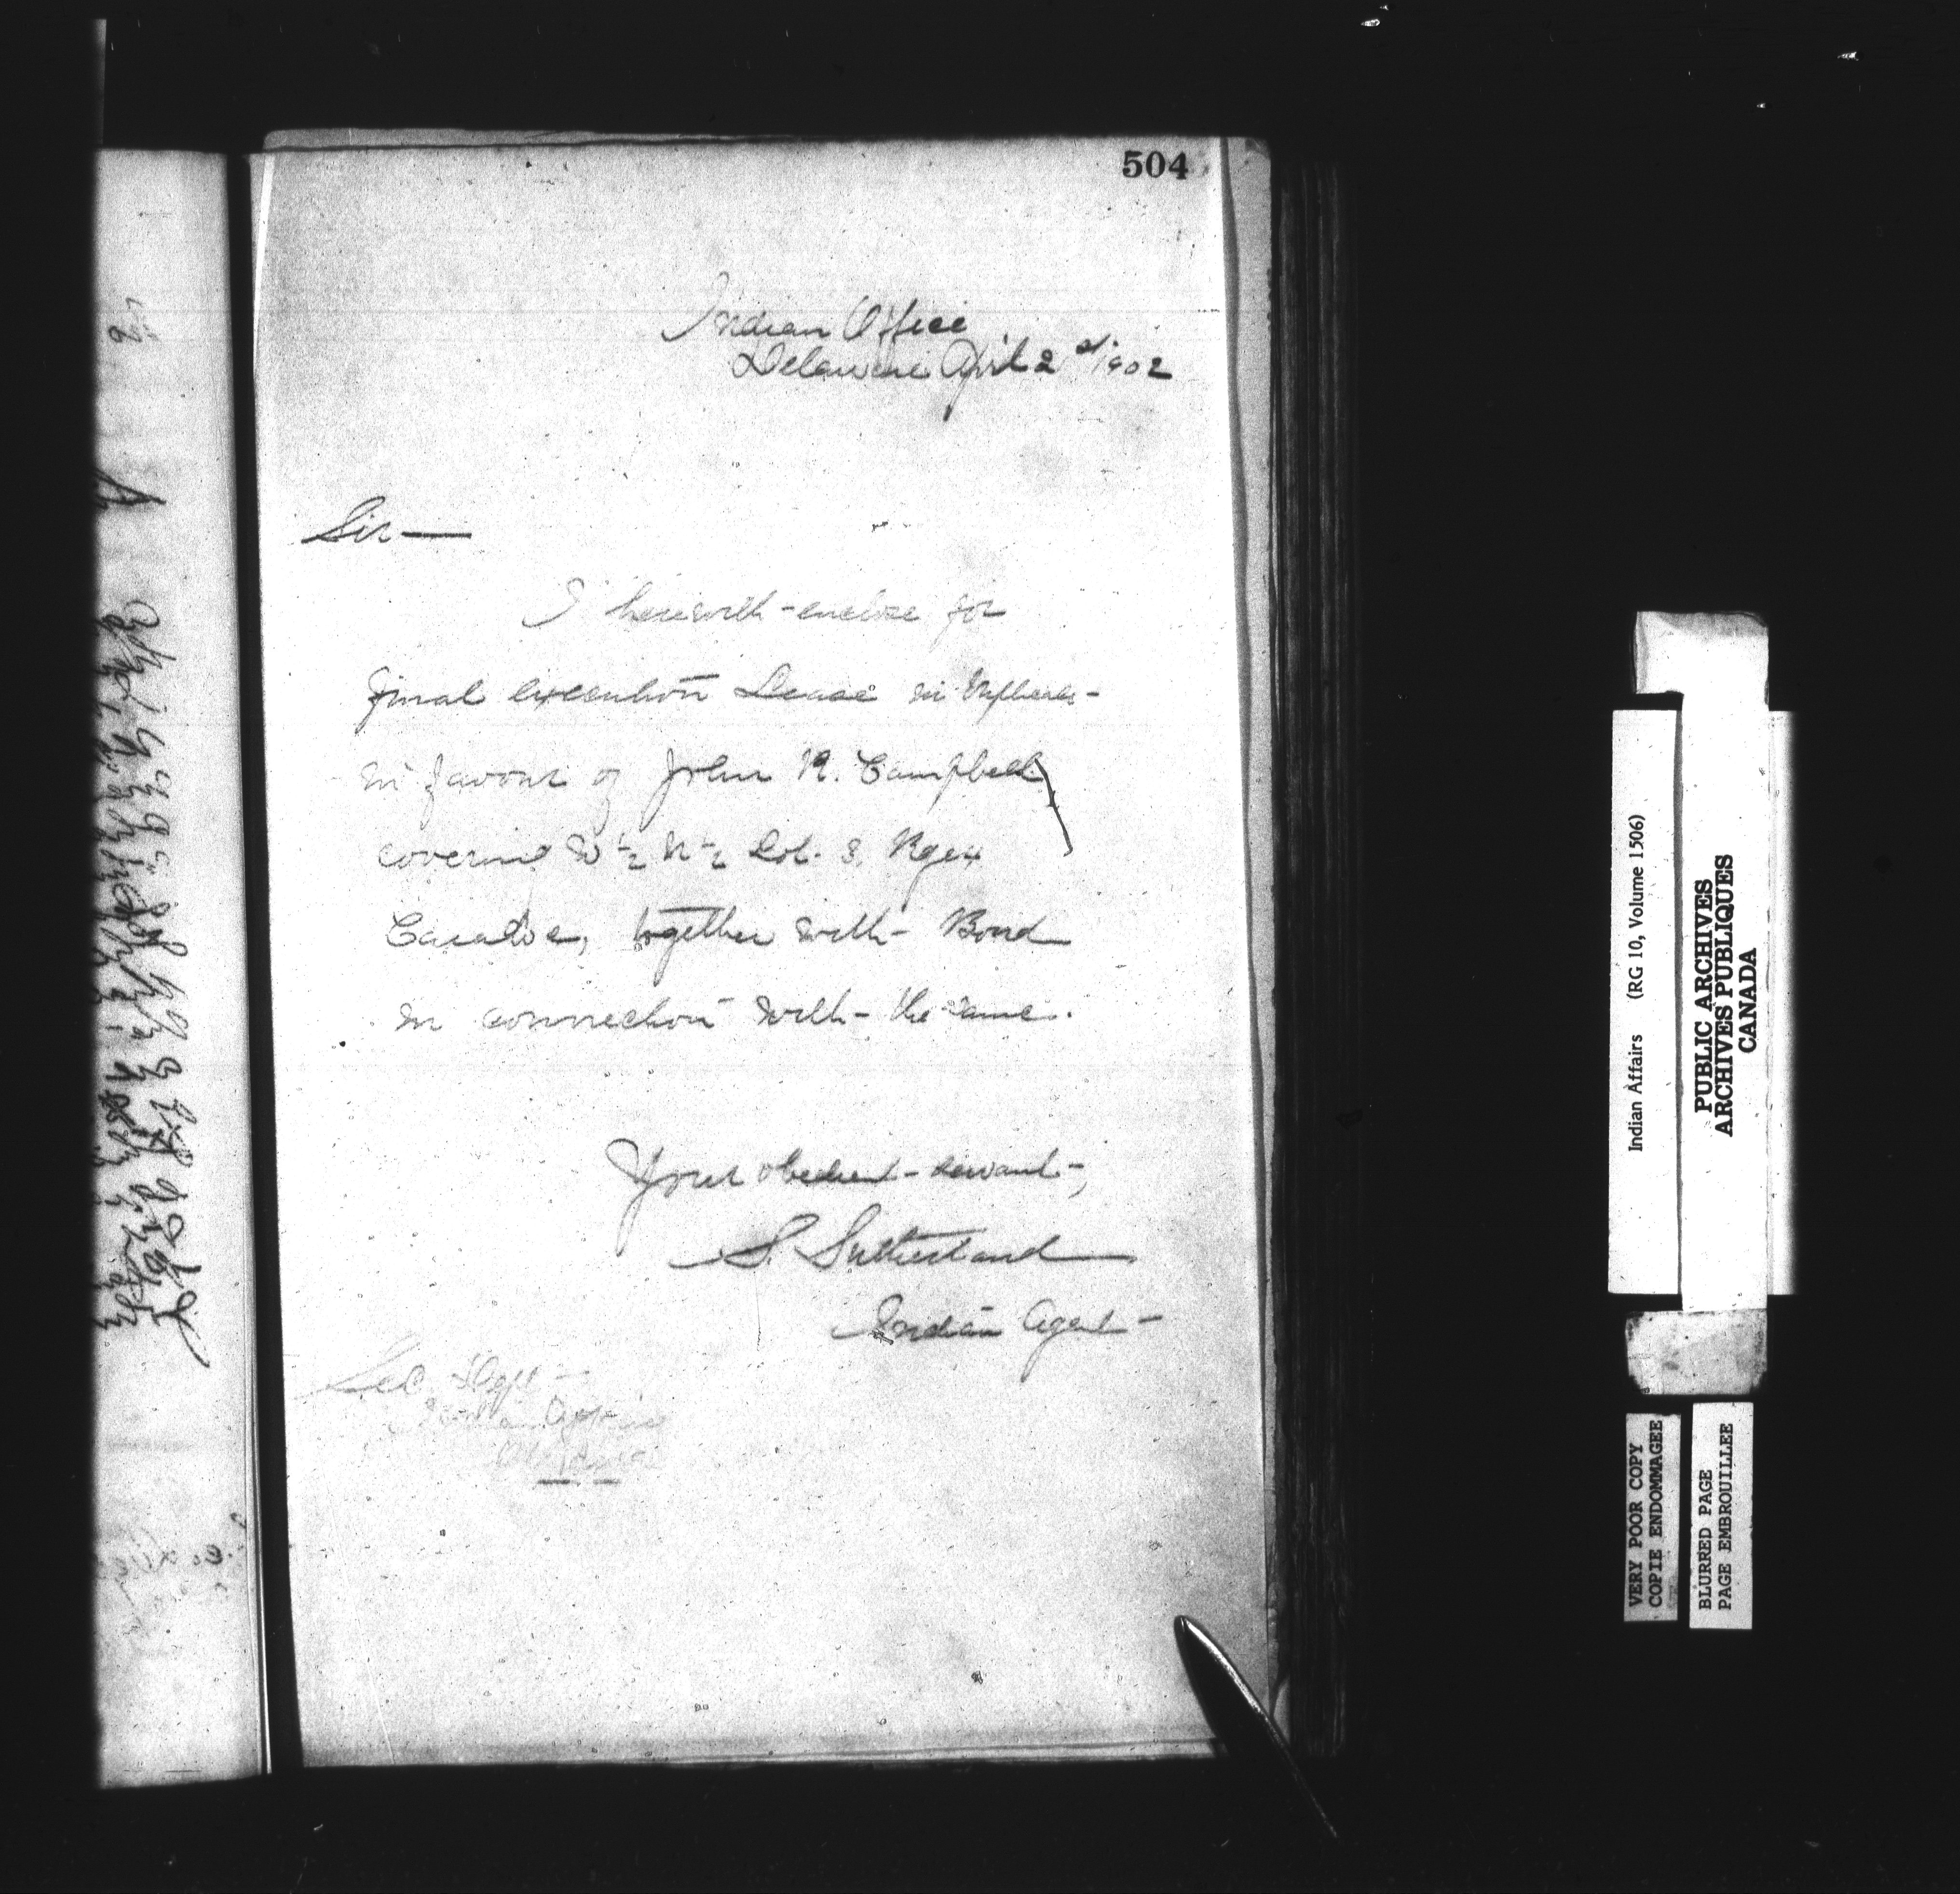 504
Indian Office
Delaware April 2nd/1902
Sir —
I herewith enclose for
final execution Lease in triplicate
in favour of John R. Campbell
covering W ½ N ½ Lot. 3. Rge 4
Caradoc, together with Bond
in connection with the same.
Your obedient servant,
S. Sutherland
Indian Agent
Sec. Dept
Indian Affairs
Ottawa
Indian Affairs (RG 10, Volume 1506)
PUBLIC ARCHIVES
ARCHIVES PUBLIQUES
CANADA
VERY POOR COPY
COPIE ENDOMMAGEE
BLURRED PAGE
PAGE EMBROUILLEE